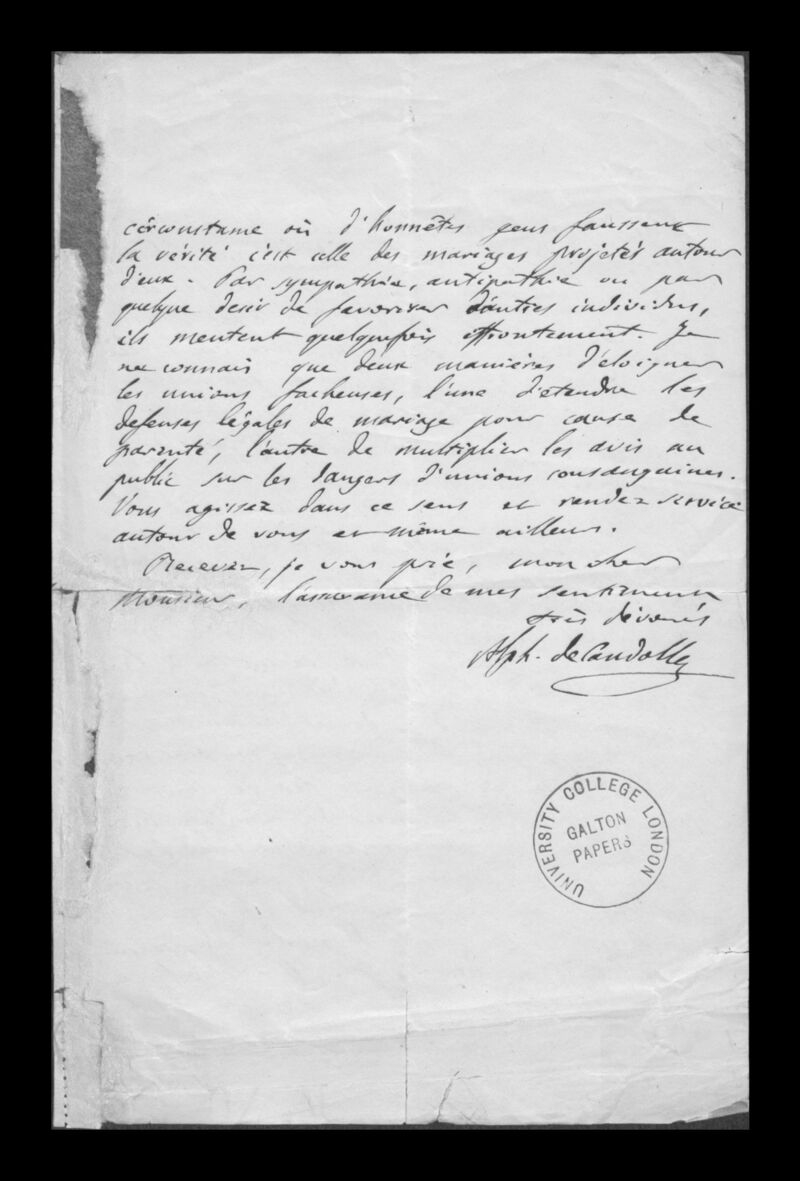 circonstance où d'honnêtes gens faussent
la vérité c'est celle des mariages projetés autour
d'eux. Par sympathie, antipathie ou par
quelque desir de favoriser d'autres individus,
ils mentent quelquefois effrontement. Je
ne connais que deux manières d'éloigner
les unions facheuses, l'une d'etendre les
defenses légales de mariage pour cause de
parenté, l'autre de multiplier les avis au
public sur les dangers d'unions consanguines.
Vous agissez dans ce sens et rendez service
autour de vous et même ailleurs.
Recevez, je vous prie, mon cher
Monsieur, l'assurance de mes sentimens
très dévoués
Alph. de Candolle
UNIVERSITY COLLEGE LONDON
GALTON
PAPERS